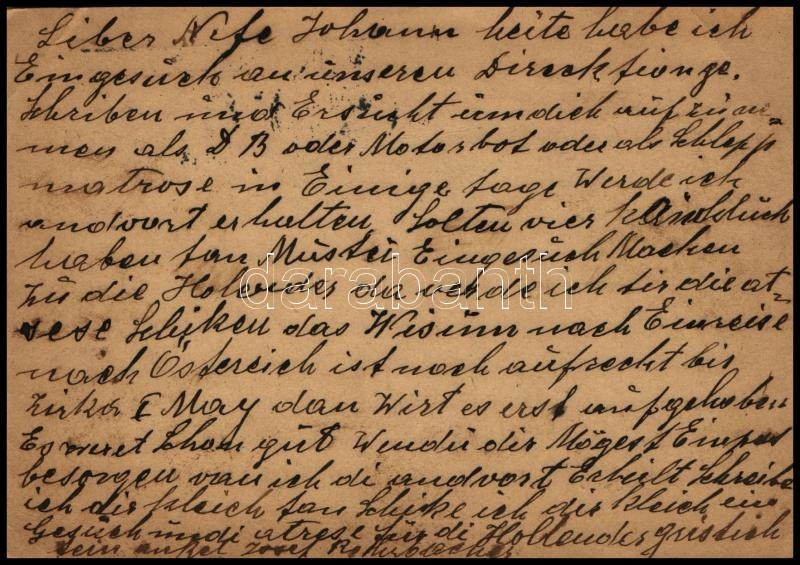 Liber Nefe Johann heite habe ich
Eingesuch an unseren Direcktion ge.
schriben und Ersucht um dich auf zu ne=
men als D B oder Motorbot oder als Schlepp
matrose in Einige tage Werde ich
andvort erhalten Solten vier kein Glück
haben tan Müstu Eingesuch Machen
zu die Holender da werde ich tir die at=
sese Schiken das Wisum nach Einreise
nach Östereich ist noch aufrecht bis
zirka I May dan Wirt es erst aufgehoben
Es weret Schon gut Wendu dir Mögest Einpas
besorgen van ich di andvort Erhilt Schreibe
ich dir kleich tan Schike ich dir kleich ein
Gesuch un di atrese für di Hollender gristich
dein onkel Josef
darabanth